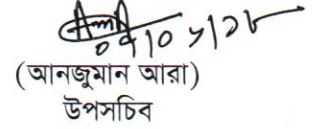 ০৭|০১|১৮
(আনজুমান আরা)
উপসচিব